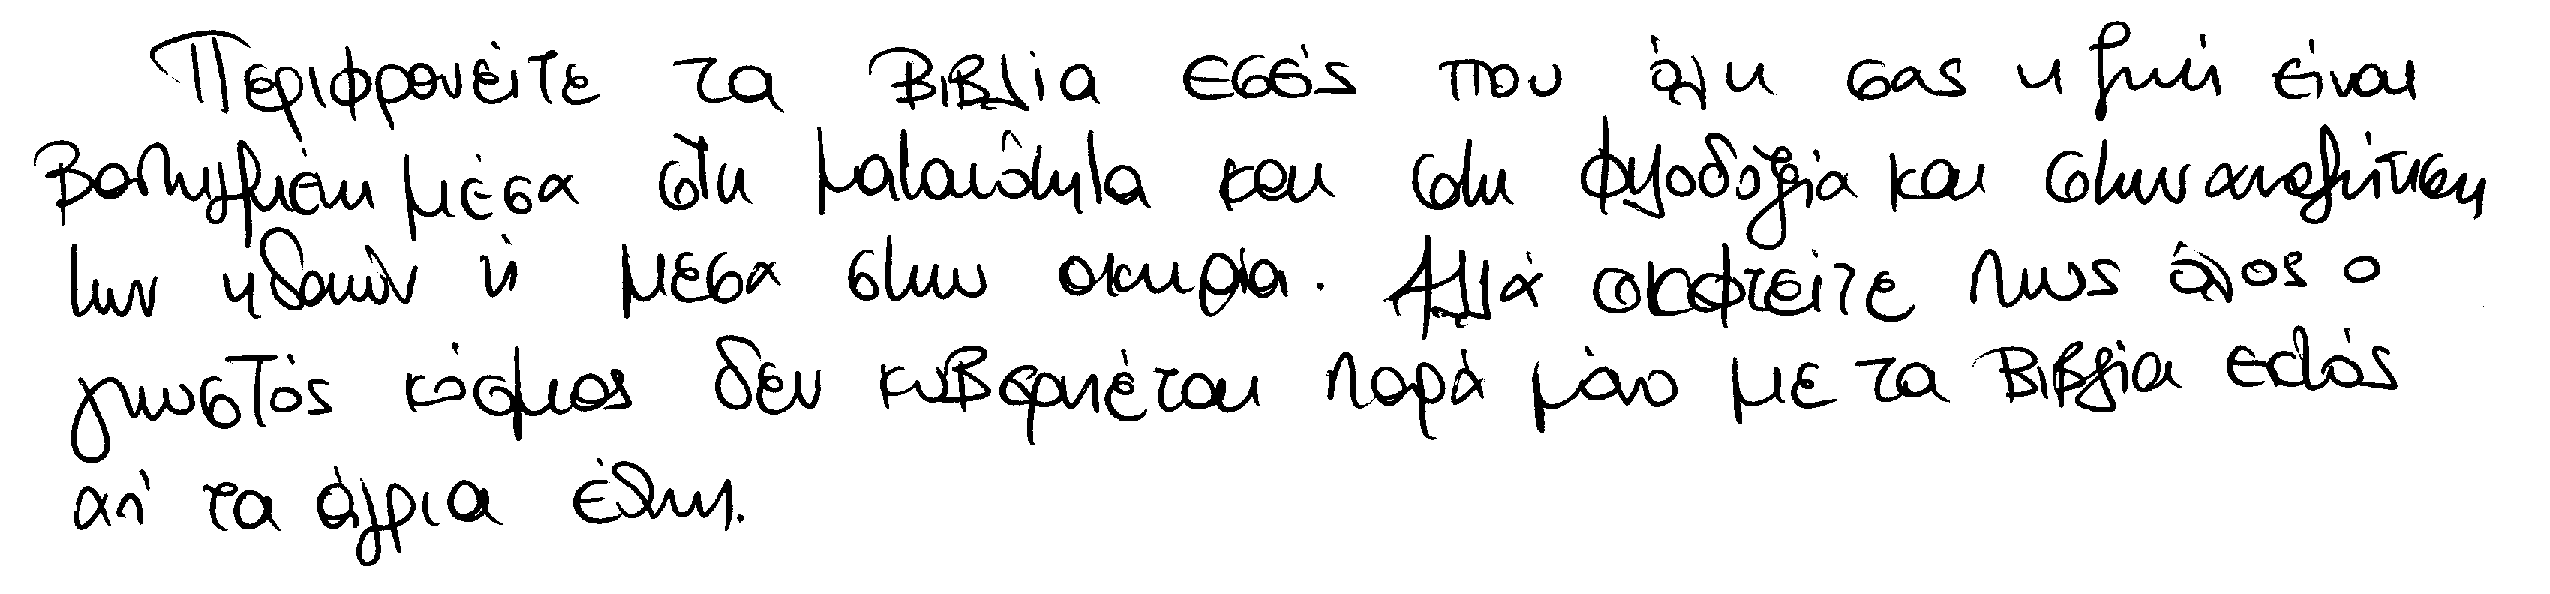 Περιφρονείτε τα βιβλία εσείς που όλη σας η ζωή είναι
βουτηγμένη μέσα στη ματαιότητα και στη φιλοδοξία και στην αναζήτηση
των ηδονών ή μέσα στην οκνηρία. Αλλά σκεφτείτε πως όλος ο
γνωστός κόσμος δεν κυβερνιέται παρά μόνο με τα βιβλία εκτός
απ' τα άγρια έθνη.